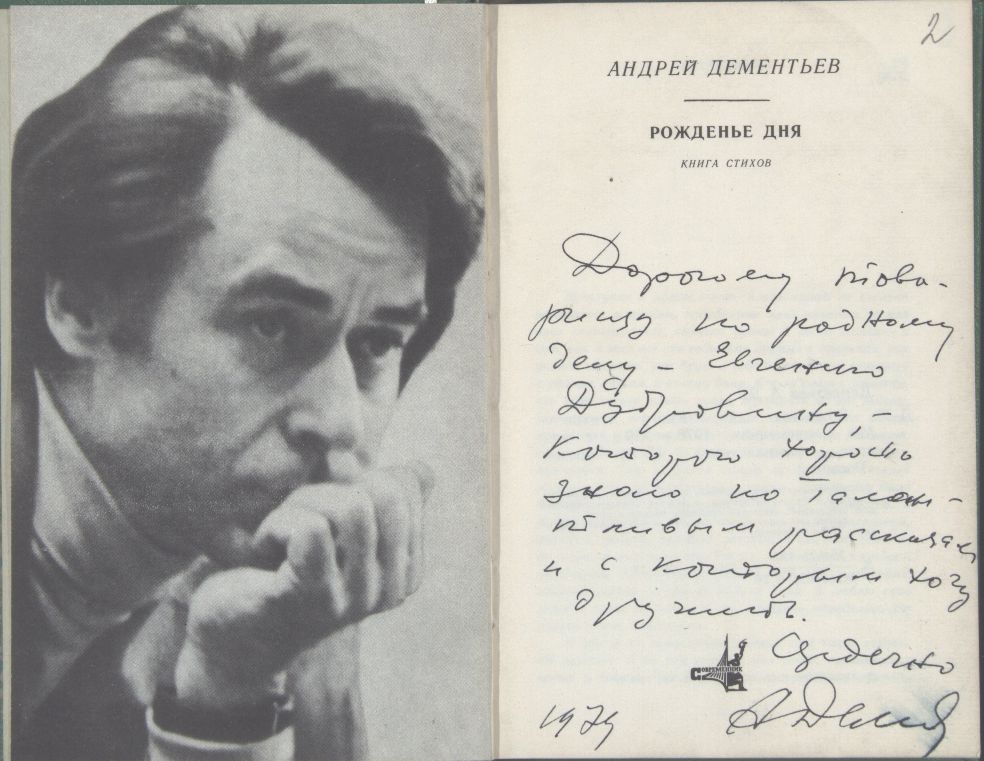 2
АНДРЕЙ ДЕМЕНТЬЕВ
РОЖДЕНЬЕ ДНЯ
КНИГА СТИХОВ
Дорогому това-
рищу по родному
делу – Евгению
Дубровину, –
которого хорошо
знаю по талан-
тливым рассказам
и с которым хочу
дружить.
Сердечно
СОВРЕМЕННИК
1979